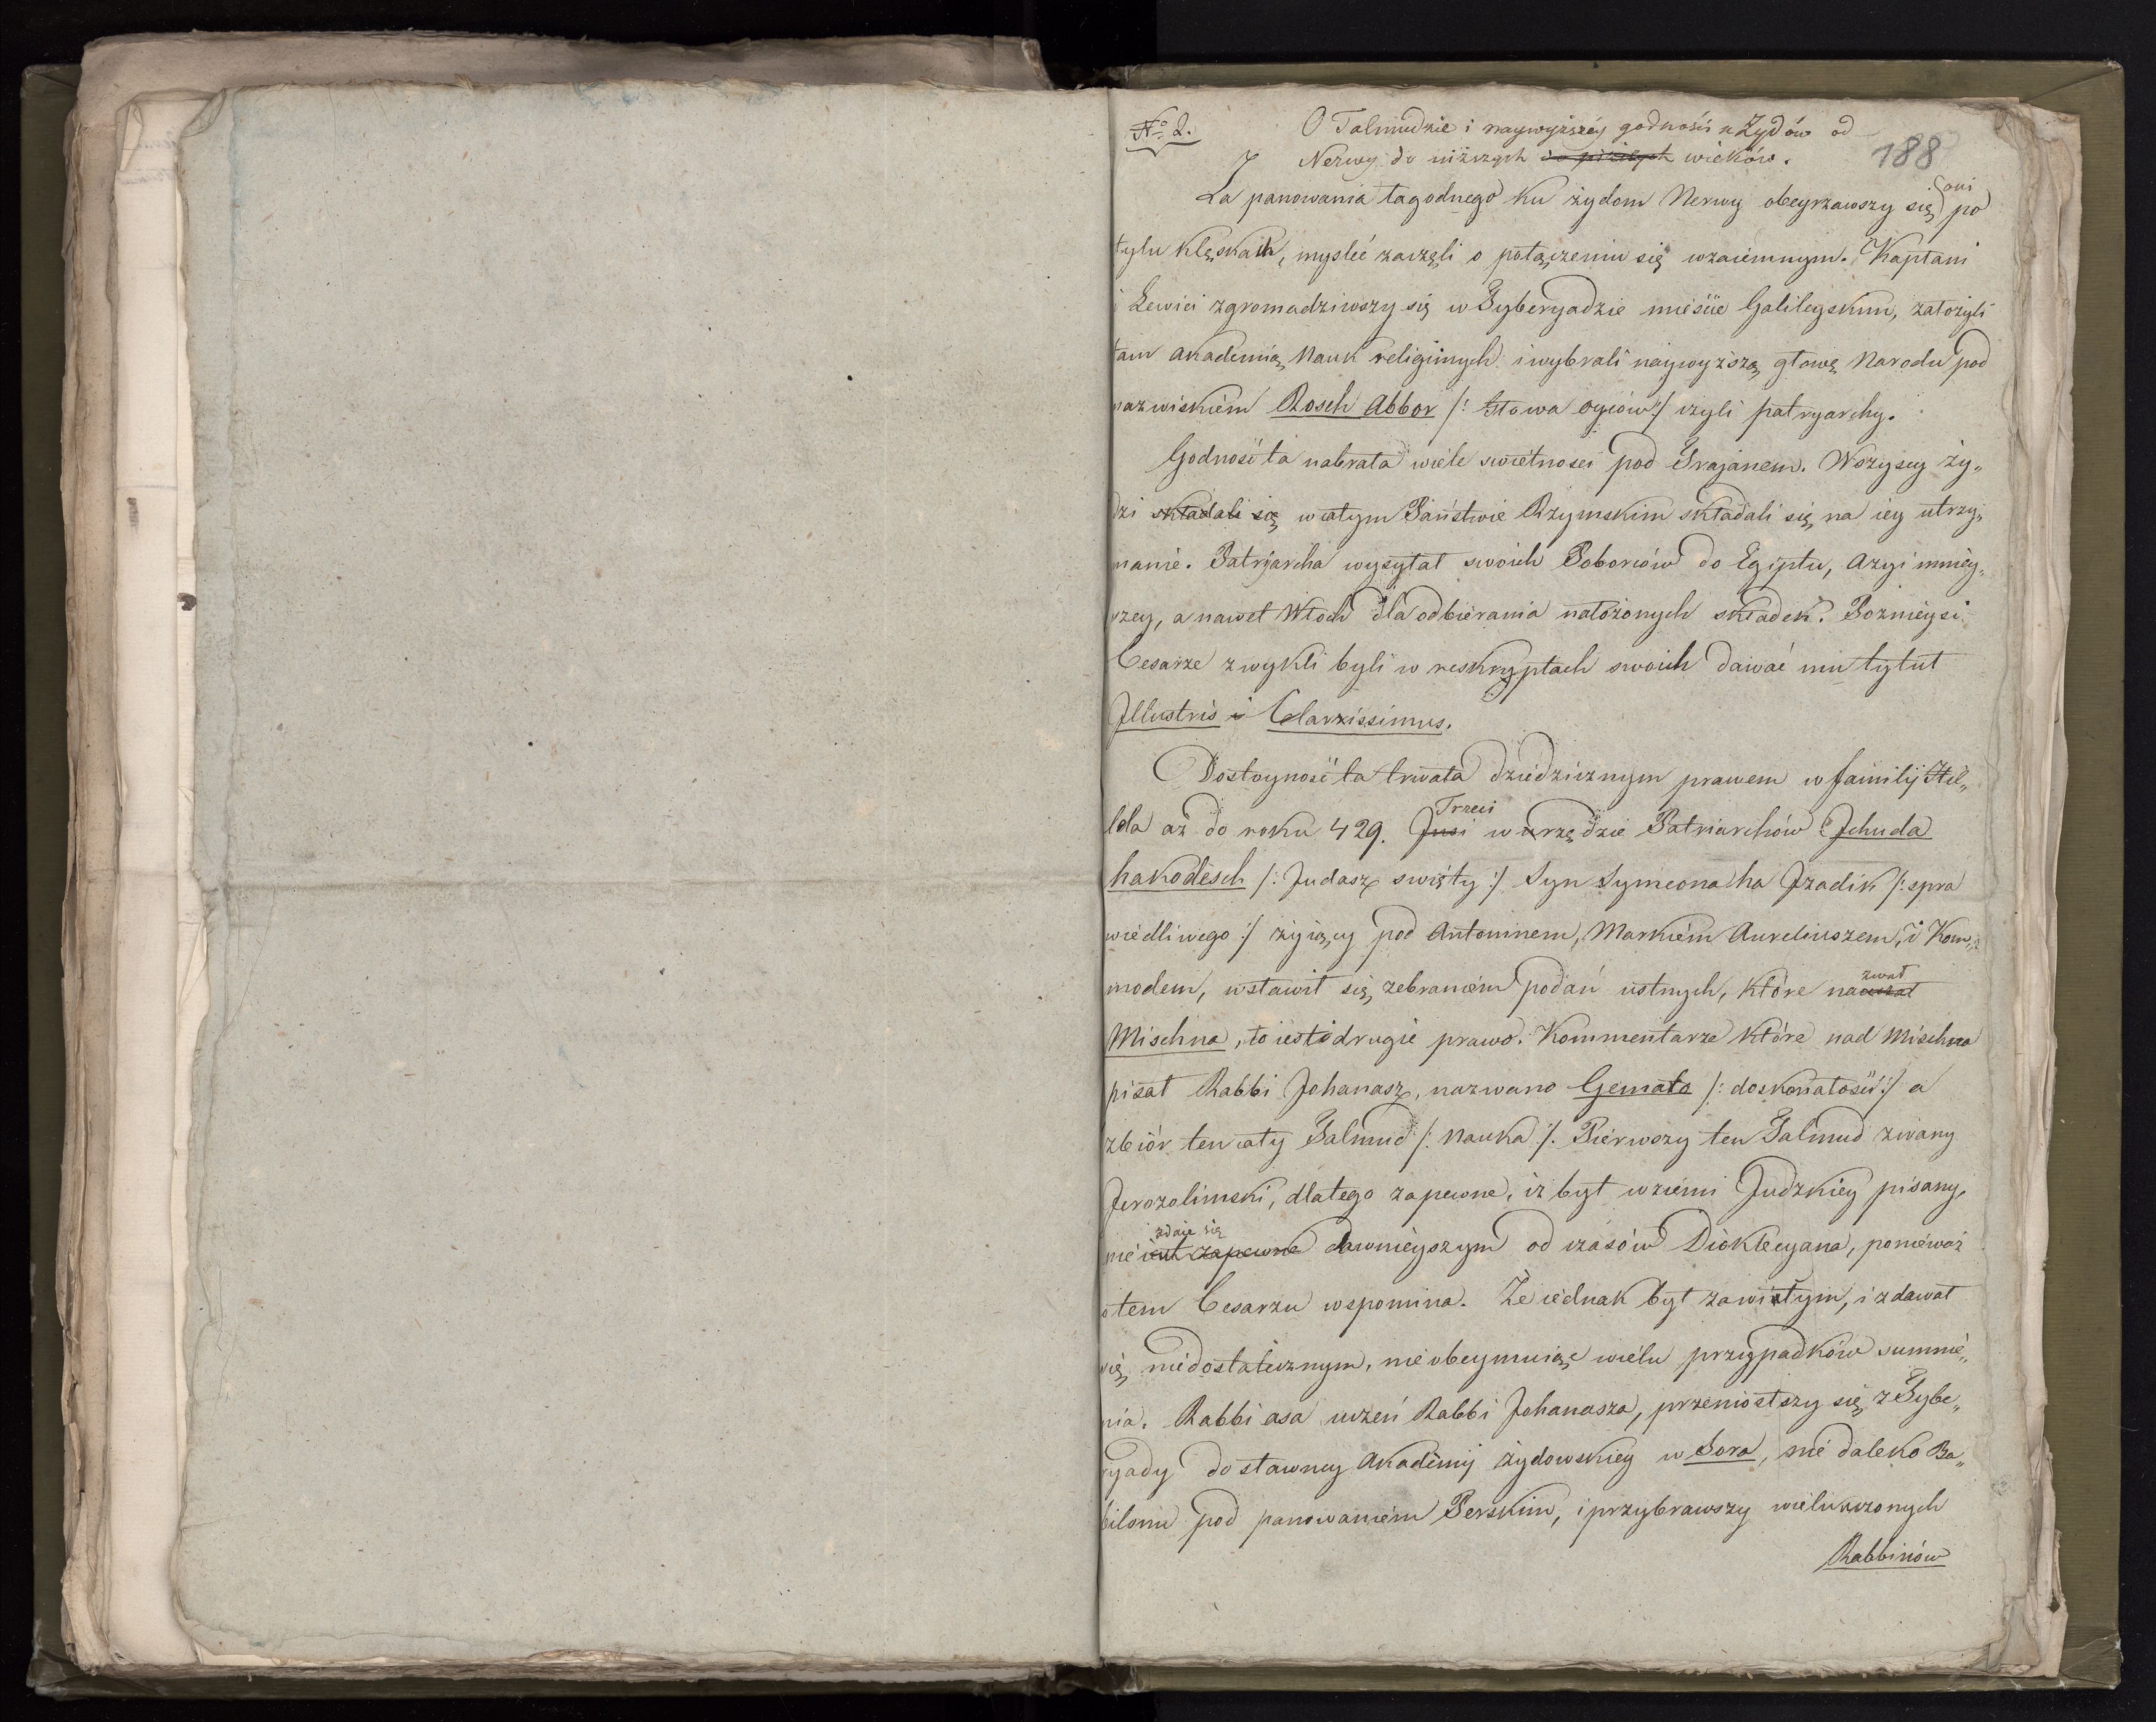 No 2.
O Talmudzie i naywyższéy godności u Żydów od
188
Nerwy do niższych wieków.
Za panowania łagodnego ku żydom Nerwy obeyrzawszy się oni po
tylu klęskach, mysleć zaczęli o połączeniu się wzaiemnym. Kapłani
i Lewici zgromadziwszy się w Tyberyadzie mieście Galileyskim, założyli
tam Akademią Nauk religiinych i wybrali naywyższą głowę Narodu pod
nazwiskiem Rosch Abbor /: Głowa oyców :/ czyli patryarchy.
Godność ta nabrała wiele swietnosci pod Trajanem. Wszyscy ży„
dzi składali się w całym Państwie Rzymskim składali się na iey utrzy„
manie. Patryarcha wysyłał swoich Poborców do Egiptu, Azyi mniey„
szey, a nawet Włoch dla odbierania nałożonych składek. Pozniéysi
Cesarze zwykli byli w reskryptach swoich dawać mu tytuł
Jllustris i Clarissimus.
Dostoyność ta trwała dziedzicznym prawem w familij Hil„
lela aż do roku 429. Trzeci w urzędzie Patriarchów Jehuda
hakodesch /: Judasz swięty :/ Syn Symeona ha Tzadik /: spra
wiedliwego :/ żyiący pod Antoninem, Markiém Aureliuszem, i Kom„
modem, wsławił się zebraniém podań ustnych, które nazwał
Mischna, to iest drugie prawo. Kommentarze które nad Mischna
pisał Rabbi Johanasz, nazwano Gemata /: doskonałość :/ a
zbiór ten cały Talmud /: Nauka :/. Piérwszy ten Talmud zwany
Jerozolimski, dlatego zapewne, iż był w ziemi Judzkiéy pisany,
nie zdaie się dawnieyszym od czasów Dioklecyana, ponieważ
o tem Cesarzu wspomina. Że iednak był zawiłym, i zdawał
się niedostatecznym, nie obeymuiąc wielu przypadków summie„
nia. Rabbi asa uczeń Rabbi Johanasza, przeniósłszy się z Tybe„
ryady do sławney Akademij żydowskiey w Sora, nie daleko Ba„
bilonu pod panowaniém Perskim, i przybrawszy wielu uczonych
Rabbinów